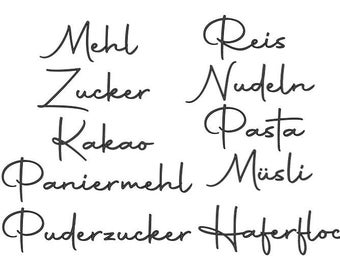 Mehl
Zucker
Kakao
Paniermehl
Puderzucker
Reis
Nudeln
Pasta
Müsli
Haferfloc